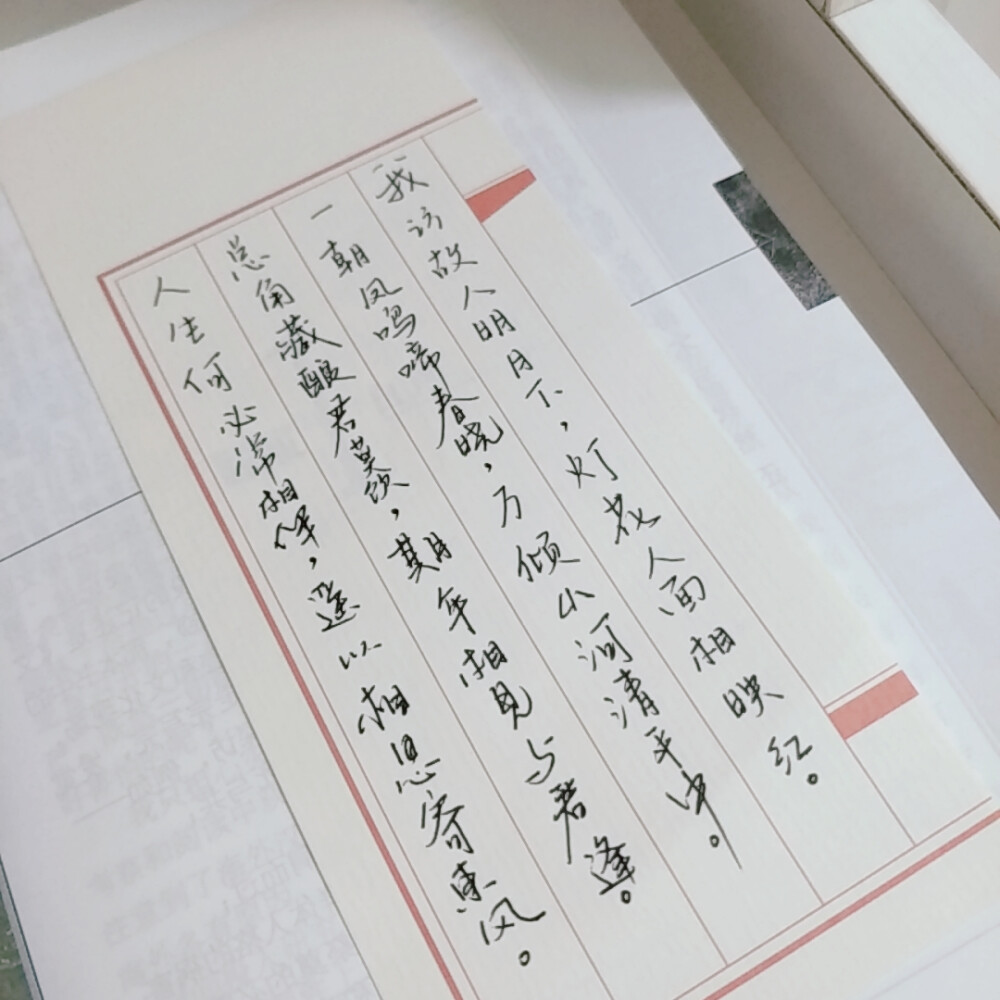 我访故人明月下，灯花人面相映红。
一朝凤鸣啼春晓，万倾山河清平中。
总角藏酿君莫饮，期年相见与君逢。
人生何必常相伴，遥以相思寄东风。